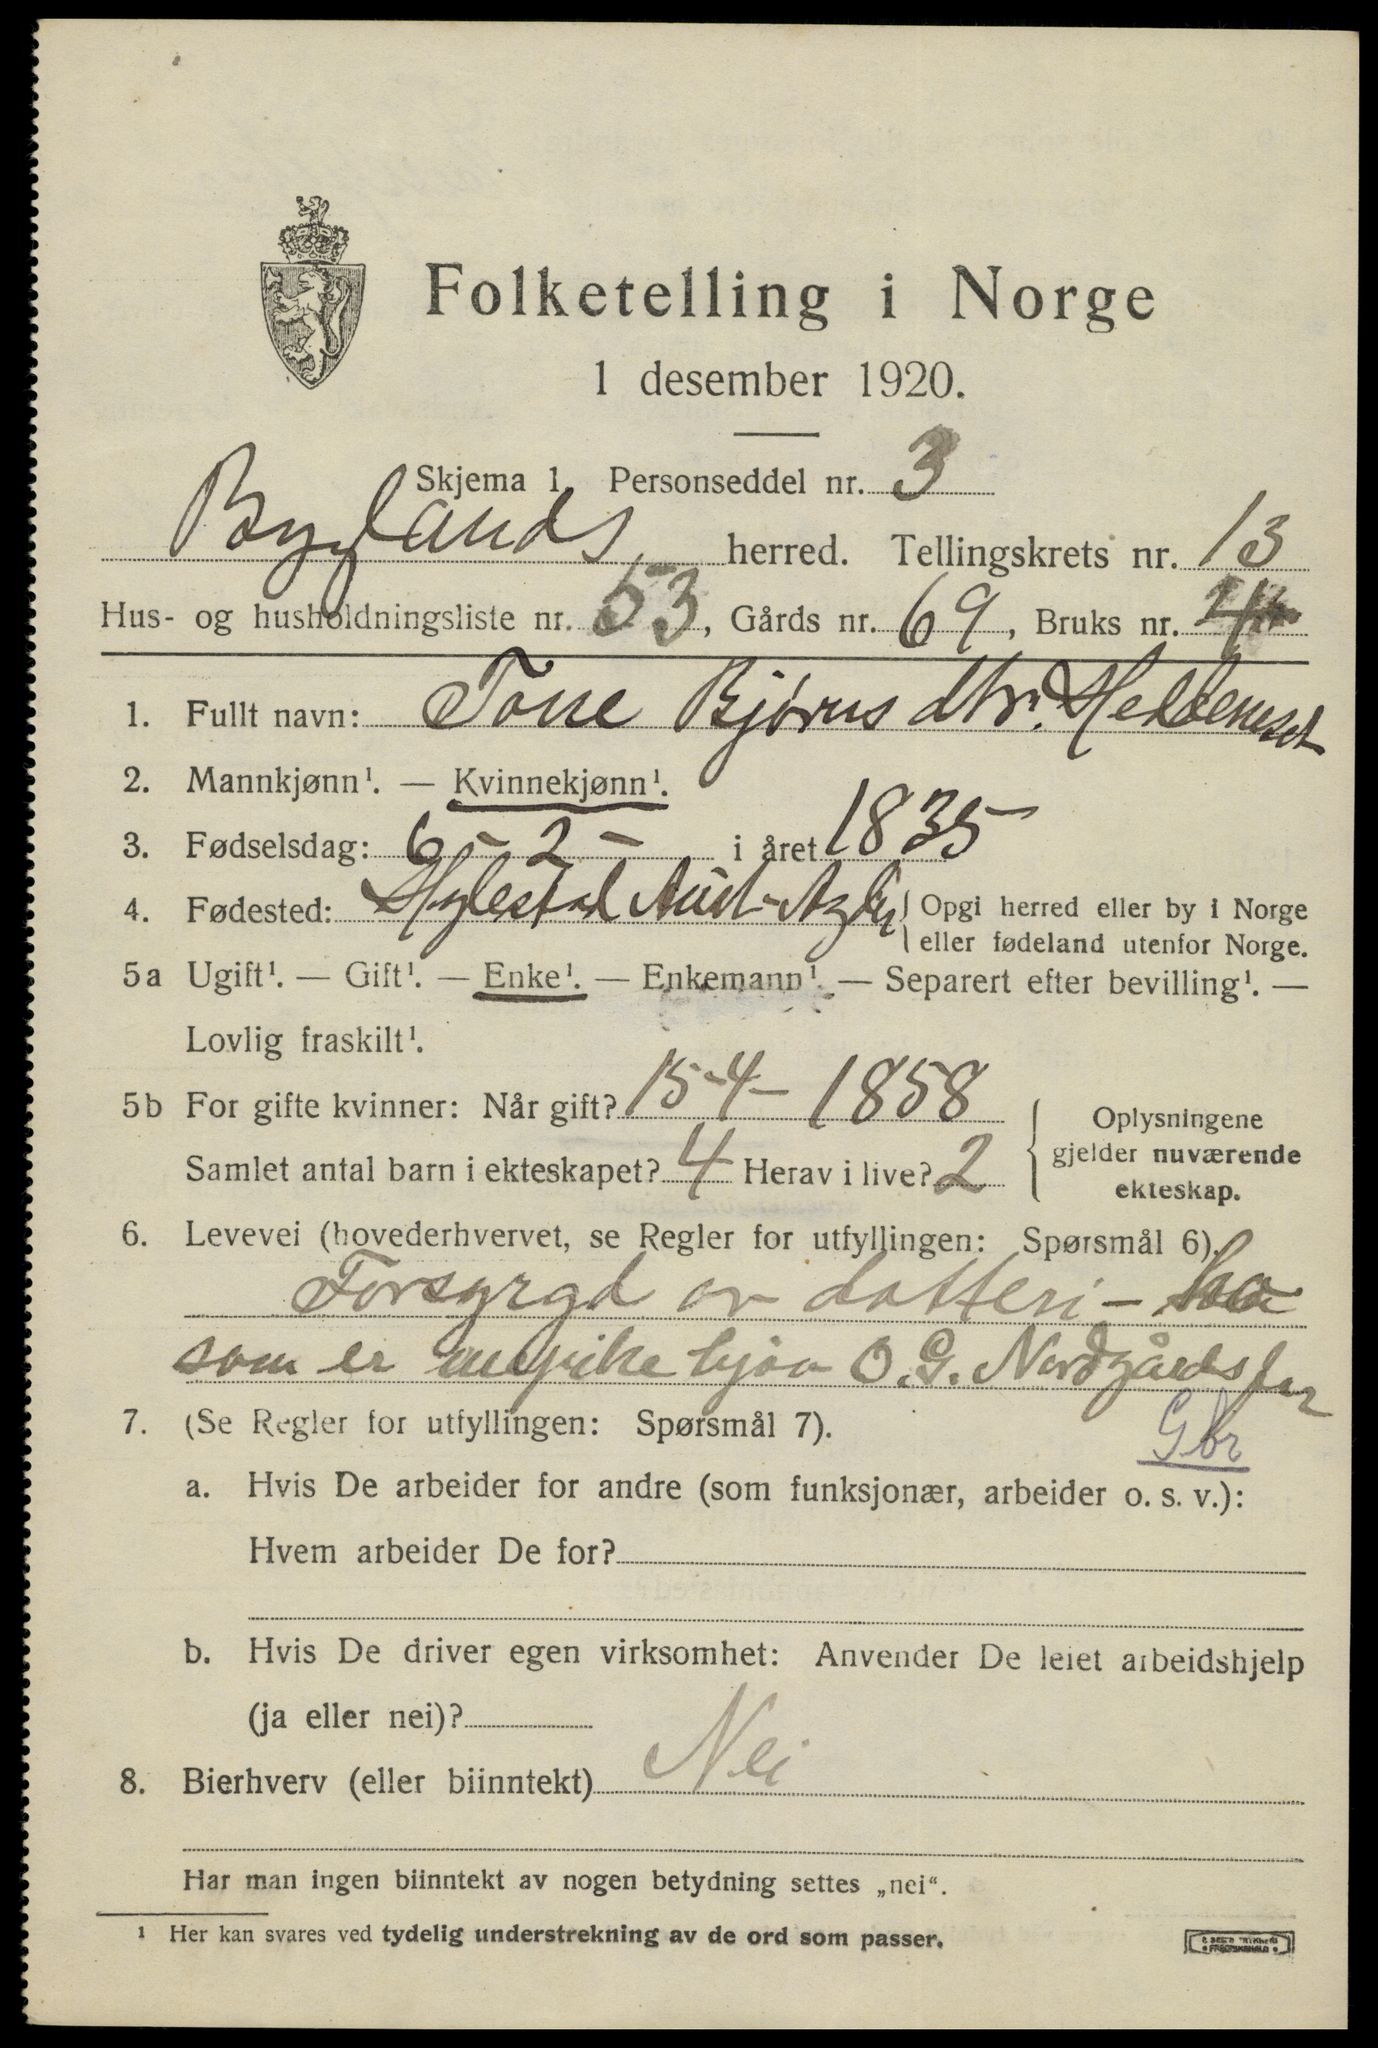 Folketelling i Norge
1 desember 1920.
Skjema 1. Personseddel nr. 3
Byglands herred. Tellingskrets nr. 13
Hus- og husholdningsliste nr. 53, Gårds nr. 69, Bruks nr. 4
1. Fullt navn: Tone Bjørns dtr.
2. Mannkjønn¹. — Kvinnekjønn¹.
3. Fødselsdag: 6 – 2 – i året 1835
4. Fødested: Hylestad Aust-Agder {Opgi herred eller by i Norge
eller fødeland utenfor Norge.
5a Ugift¹. — Gift¹. — Enke¹. — Enkemann¹. — Separert efter bevilling¹. —
Lovlig fraskilt¹.
5b For gifte kvinner: Når gift? 15-4- 1858
Samlet antal barn i ekteskapet? 4 Herav i live? 2
Oplysningene
gjelder nuværende
ekteskap.
6. Levevei (hovederhvervet, se Regler for utfyllingen: Spørsmål 6).
Forsyrgd av datteri –
som er hjaa O. G. Nordgårds
7. (Se Regler for utfyllingen: Spørsmål 7).
Gbr
a. Hvis De arbeider for andre (som funksjonær, arbeider o. s. v.):
Hvem arbeider De for?
b. Hvis De driver egen virksomhet: Anvender De leiet arbeidshjelp
(ja eller nei)?
8. Bierhverv (eller biinntekt) Nei
Har man ingen biinntekt av nogen betydning settes „nei“.
¹ Her kan svares ved tydelig understrekning av de ord som passer.